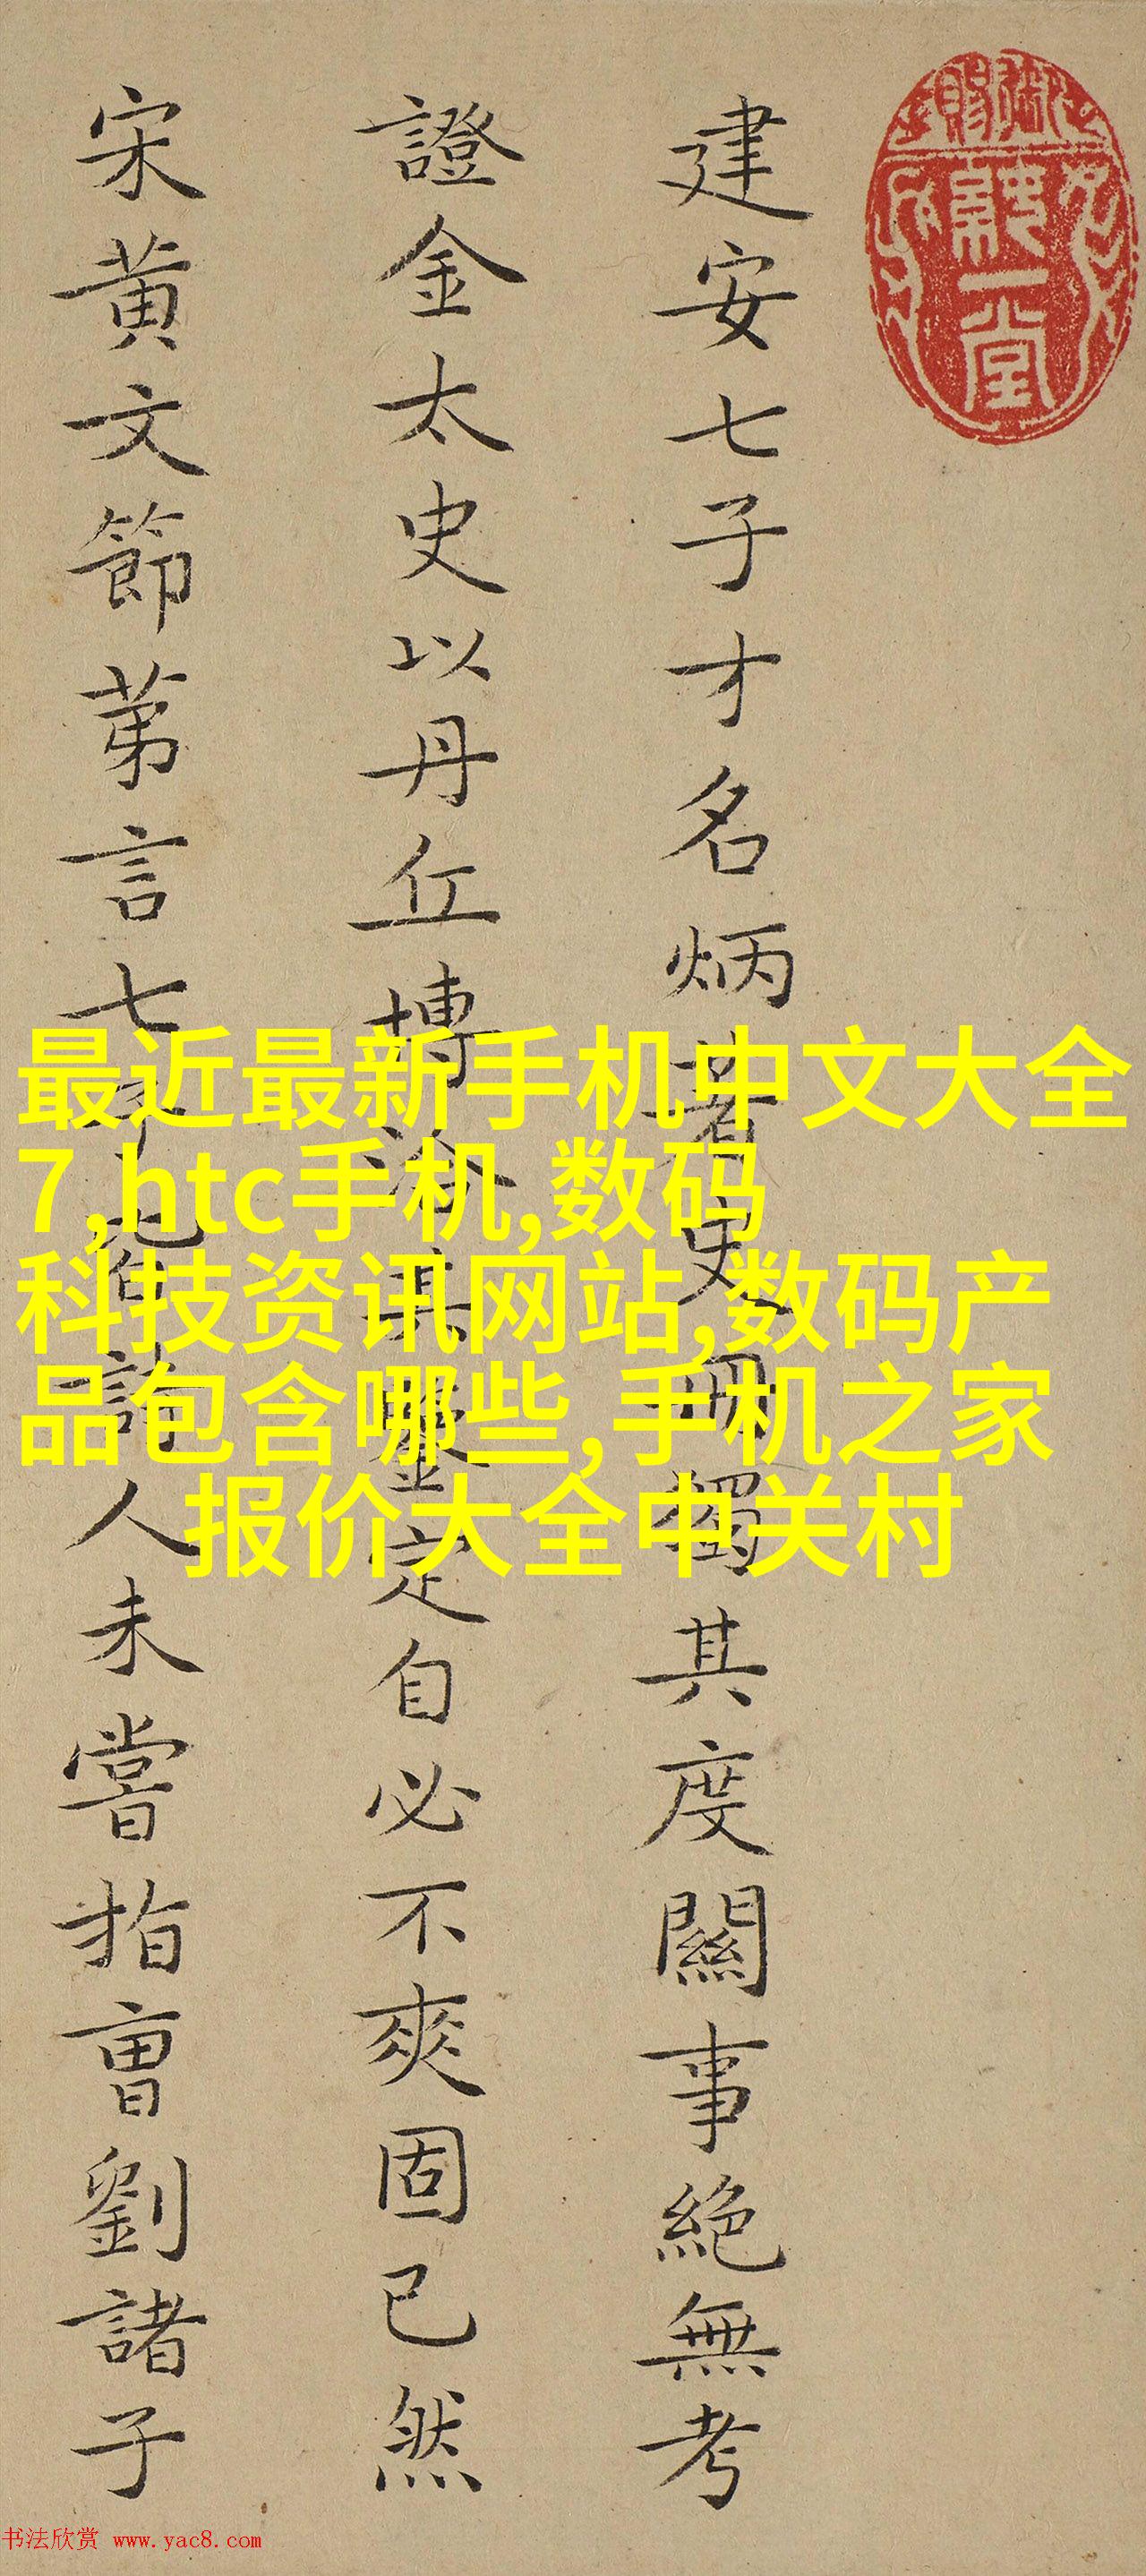 建安七子才名炳著史冊獨其度關事絶無考
證金太史以丹丘博洽其鑒定自必不爽固已然
宋黄文節苐言七
人未嘗指曹劉諸子
最近最新手机中文大全
7,htc手机,数码
科技资讯网站,数码产
品包含哪些,手机之家
报价大全中关村
书法欣赏 www.yac8.com